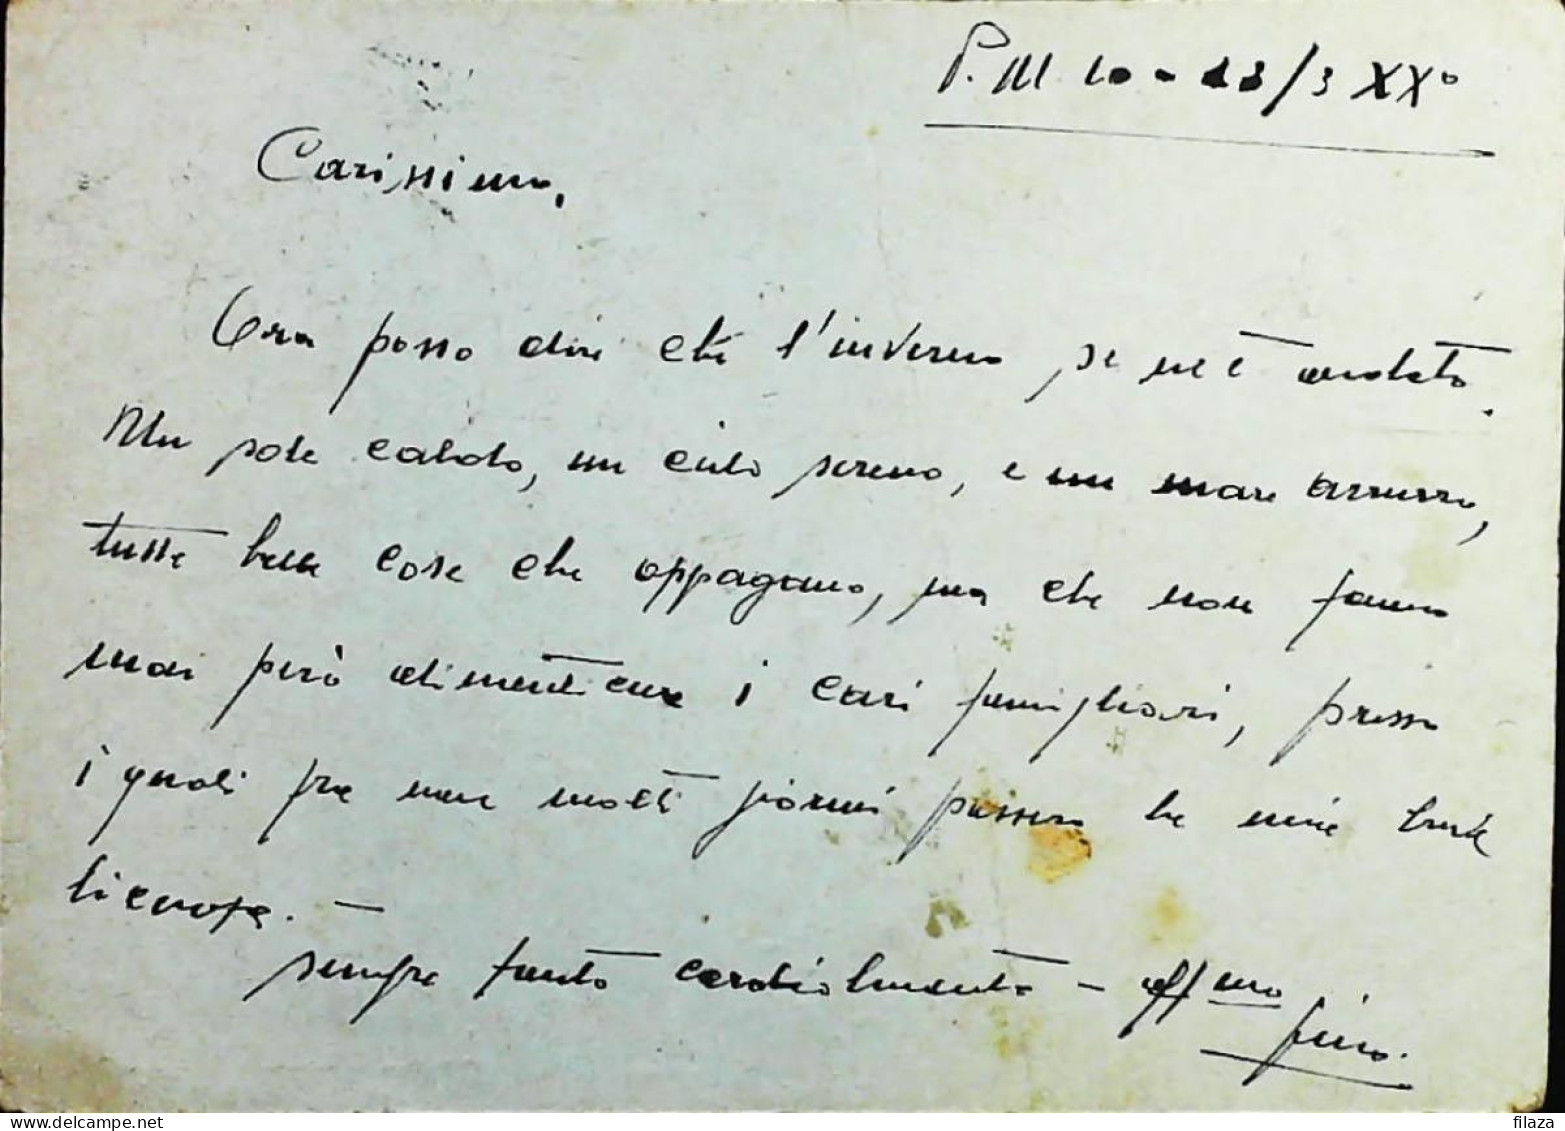 P.M 10 - 23/3 XX°
Carissimo,
Ora posso dire che l'inverno se ne è andato.
Un sole caldo, un cielo sereno, e un mare azzurro,
tutte belle cose che appagano, ma che non fanno
mai però dimenticare i cari famigliari, presso
i quali fra non molti giorni passerò la mia breve
licenza. —
sempre tanto cordialmente - aff mo
Pino.
filaza